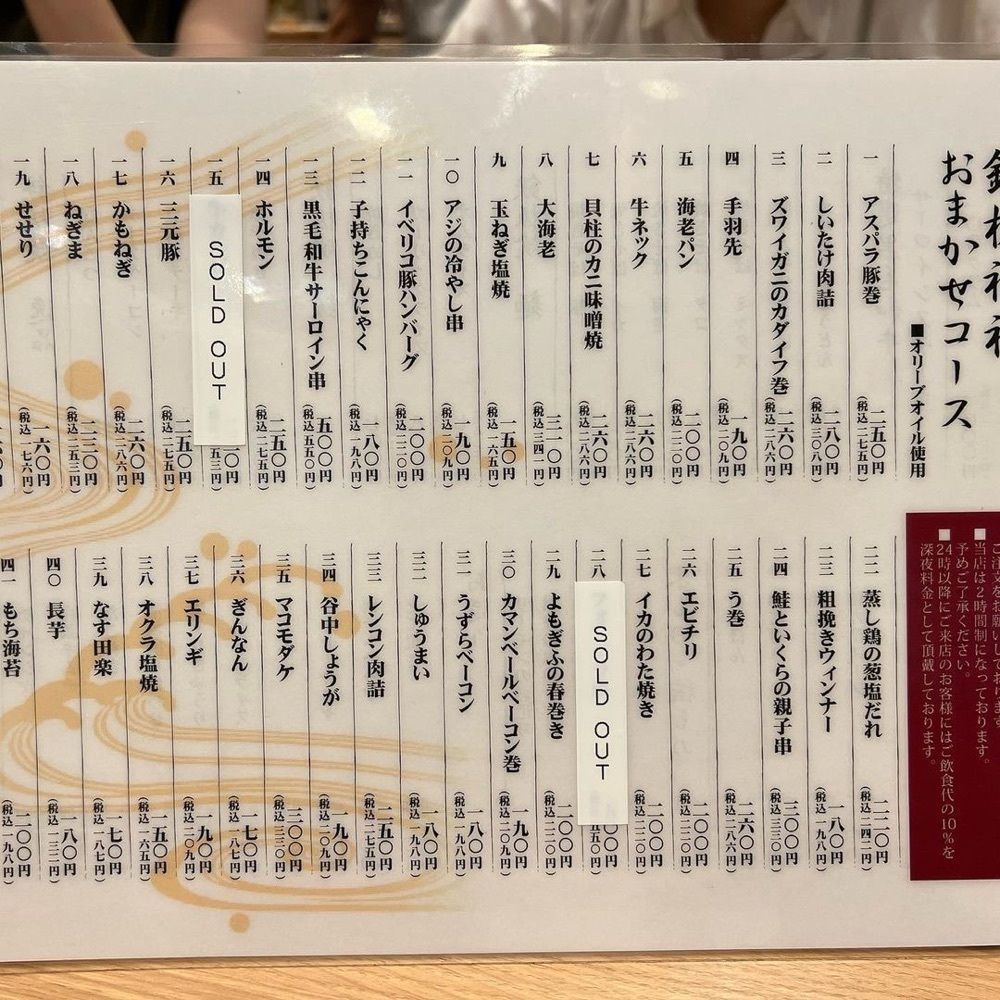 おまかせコース
■オリーブオイル使用
一 アスパラ豚巻 二五〇円 (税込二七五円)
二 しいたけ肉詰 一八〇円 (税込二〇八円)
三 ズワイガニのカダイフ巻 二六〇円 (税込二八六円)
四 手羽先 一九〇円 (税込二〇九円)
五 海老パン 二〇〇円 (税込二二〇円)
六 牛ネック 二六〇円 (税込二八六円)
七 貝柱のカニ味噌焼 二六〇円 (税込二八六円)
八 大海老 三一〇円 (税込三四一円)
九 玉ねぎ塩焼 一五〇円 (税込一六五円)
一〇 アジの冷やし串 一九〇円 (税込二〇九円)
一一 イベリコ豚ハンバーグ 二〇〇円 (税込二二〇円)
一二 子持ちこんにゃく 一八〇円 (税込一九八円)
一三 黒毛和牛サーロイン串 五〇〇円 (税込五五〇円)
一四 ホルモン 二五〇円 (税込二七五円)
一五 SOLD OUT 〇円 五三円)
一六 三元豚 二五〇円 (税込二七五円)
一七 かもねぎ 二六〇円 (税込二八六円)
一八 ねぎま 二三〇円 (税込二五三円)
一九 せせり 一六〇円 (税込一七六円)
■当店は2時間制になっております。
予めご了承ください。
■24時以降にご来店のお客様にはご飲食代の10%を
深夜料金として頂戴しております。
二二 蒸し鶏の葱塩だれ 二二〇円 (税込二四二円)
二三 粗挽きウィンナー 一八〇円 (税込一九八円)
二四 鮭といくらの親子串 三〇〇円 (税込三三〇円)
二五 う巻 二六〇円 (税込二八六円)
二六 エビチリ 二〇〇円 (税込二二〇円)
二七 イカのわた焼き 二〇〇円 (税込二二〇円)
二八 SOLD OUT 〇〇円 五五〇円)
二九 よもぎふの春巻き 二〇〇円 (税込二二〇円)
三〇 カマンベールベーコン巻 一九〇円 (税込二〇九円)
三一 うずらベーコン 一八〇円 (税込一九八円)
三二 しゅうまい 一八〇円 (税込一九八円)
三三 レンコン肉詰 二五〇円 (税込二七五円)
三四 谷中しょうが 一九〇円 (税込二〇九円)
三五 マコモダケ 三〇〇円 (税込三三〇円)
三六 ぎんなん 一七〇円 (税込一八七円)
三七 エリンギ 一九〇円 (税込二〇九円)
三八 オクラ塩焼 一五〇円 (税込一六五円)
三九 なす田楽 一七〇円 (税込一八七円)
四〇 長芋 一八〇円
四一 もち海苔 二〇〇円